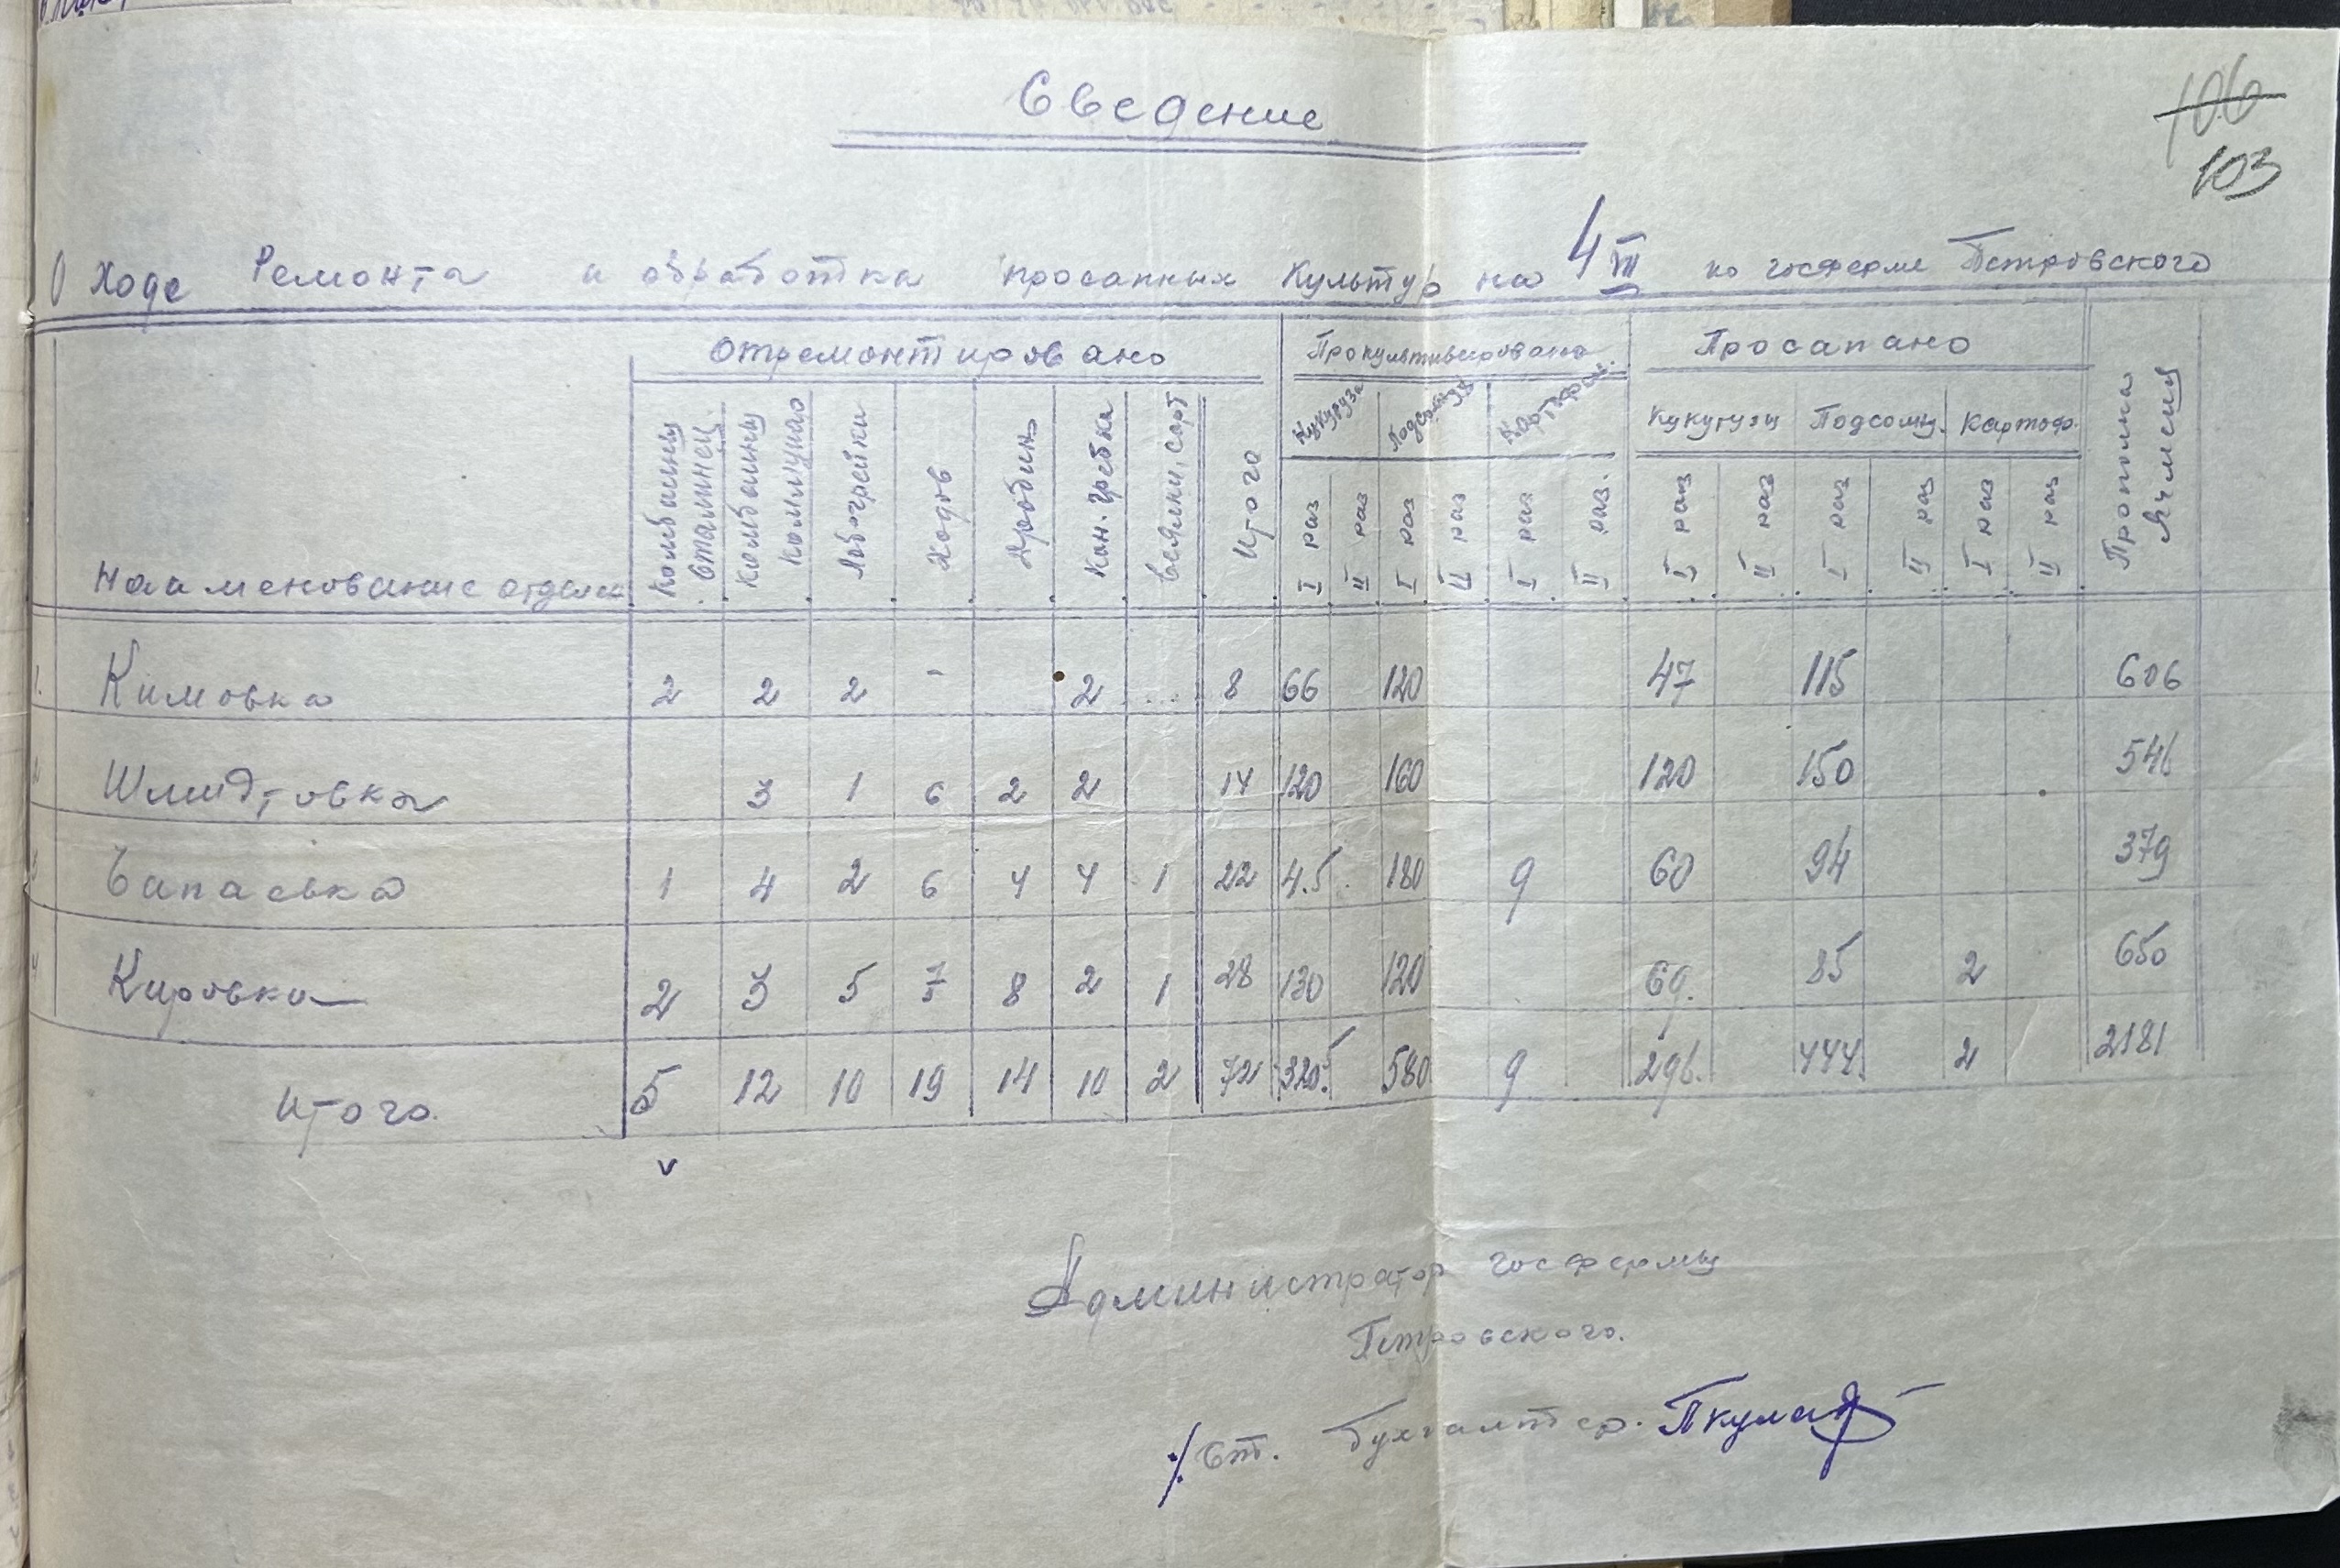 Сведение
106
103
О Ходе Ремонта и обработка просапных Культур на 4 VII по госферме Петровского
Наименование отделен
Отремонтировано
Прокультивировано
Просапано
Прополка Ячменя
Комбайны Сталинец
Комбайны Коммунар
Лобогрейки
Ходов
Дробин
Кон. гребка
Веялки, сорт
Итого
Кукуруза
Подсолнух
Картофел.
Кукурузы
Подсолну.
Картоф.
I раз
II раз
I раз
II раз
I раз
II раз.
I раз
II раз
I раз
II раз
I раз
II раз
1. Кимовка 2 2 2 - 2 8 66 120 47 115 606
2 Шмидтовка 3 1 6 2 2 14 120 160 120 150 546
3 Чапаевка 1 4 2 6 4 4 1 22 4.5 180 9 60 94 379
4 Кировка 2 3 5 7 8 2 1 28 130 120 69. 85 2 650
Итого 5 12 10 19 14 10 2 72 320.5 580 9 296. 444. 2 2181
v
Администратор госфермы
Петровского.
Ст. бухгалтер.